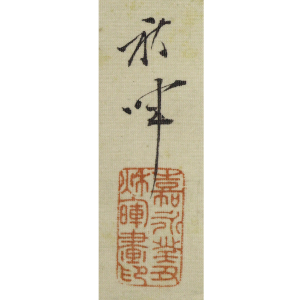 秋暉
嘉永癸丑
秌暉畫印